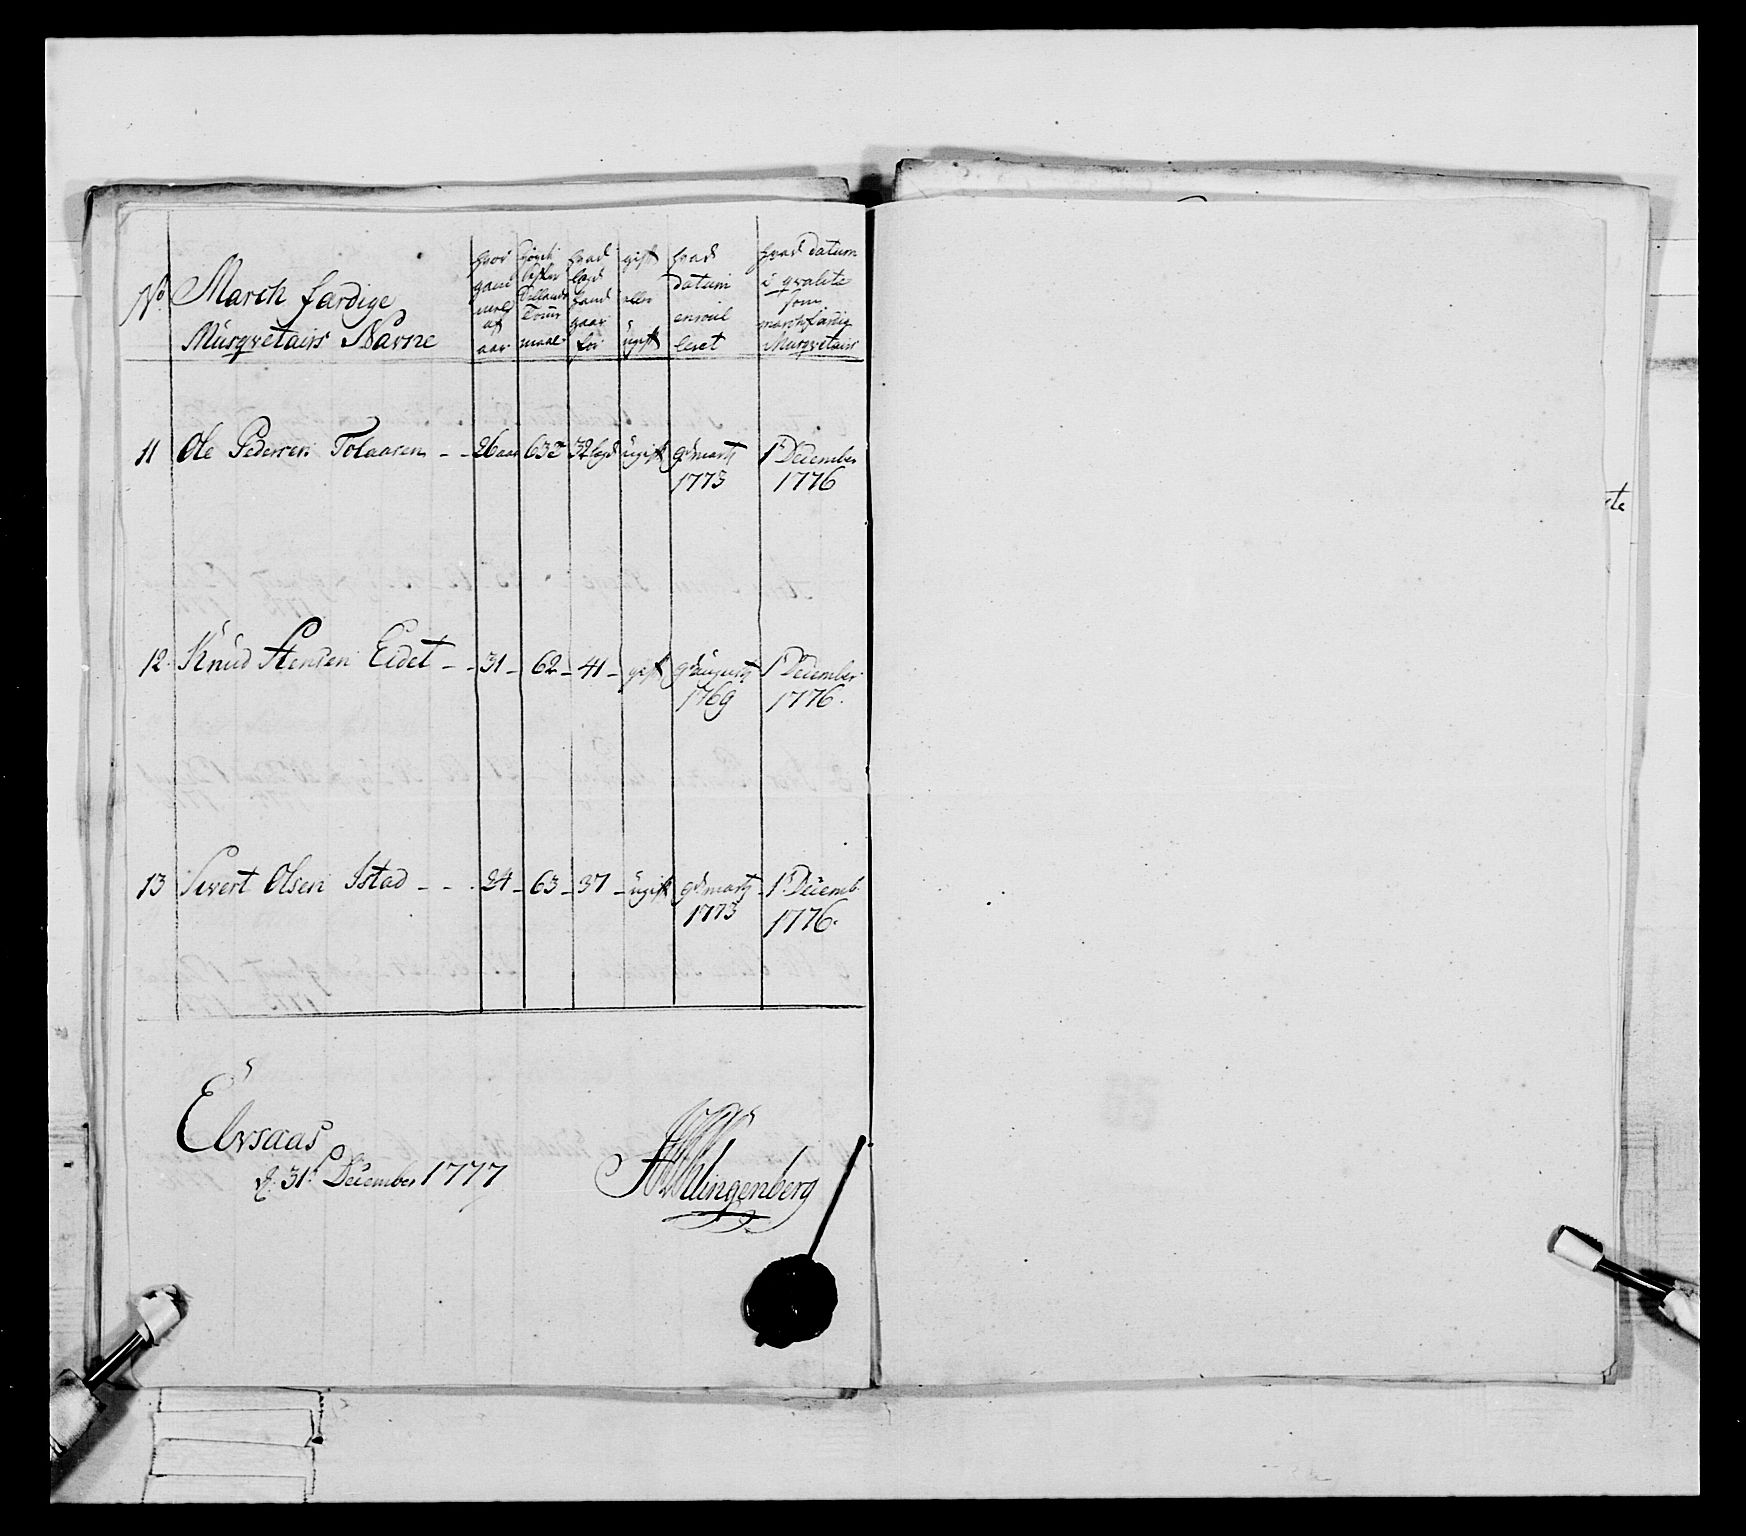 No March færdige Musqvetairs Navne | hvor gammel af aar | høyde tomme maal | hvad lægd hand gaar for | gift eller ugift | hvad datum enroulleret | hvad datum i qvalite som marchfærdig Musqvetair
11 Ole Pedersen Tolaasen - - 26 aar 63 32 lægd ugift 9d marty 1773 1d December 1776
12. Knud Stensen Eidet - - 31 - 62 - 41 - gift 9d augusty 1769 1d December 1776.
13 Sivert Olsen Istad - - - 24 - 63 - 37 - ugift 9d marty 1773 1d Decemb. 1776.
Elvsaas
d. 31d December 1777
Klingenberg